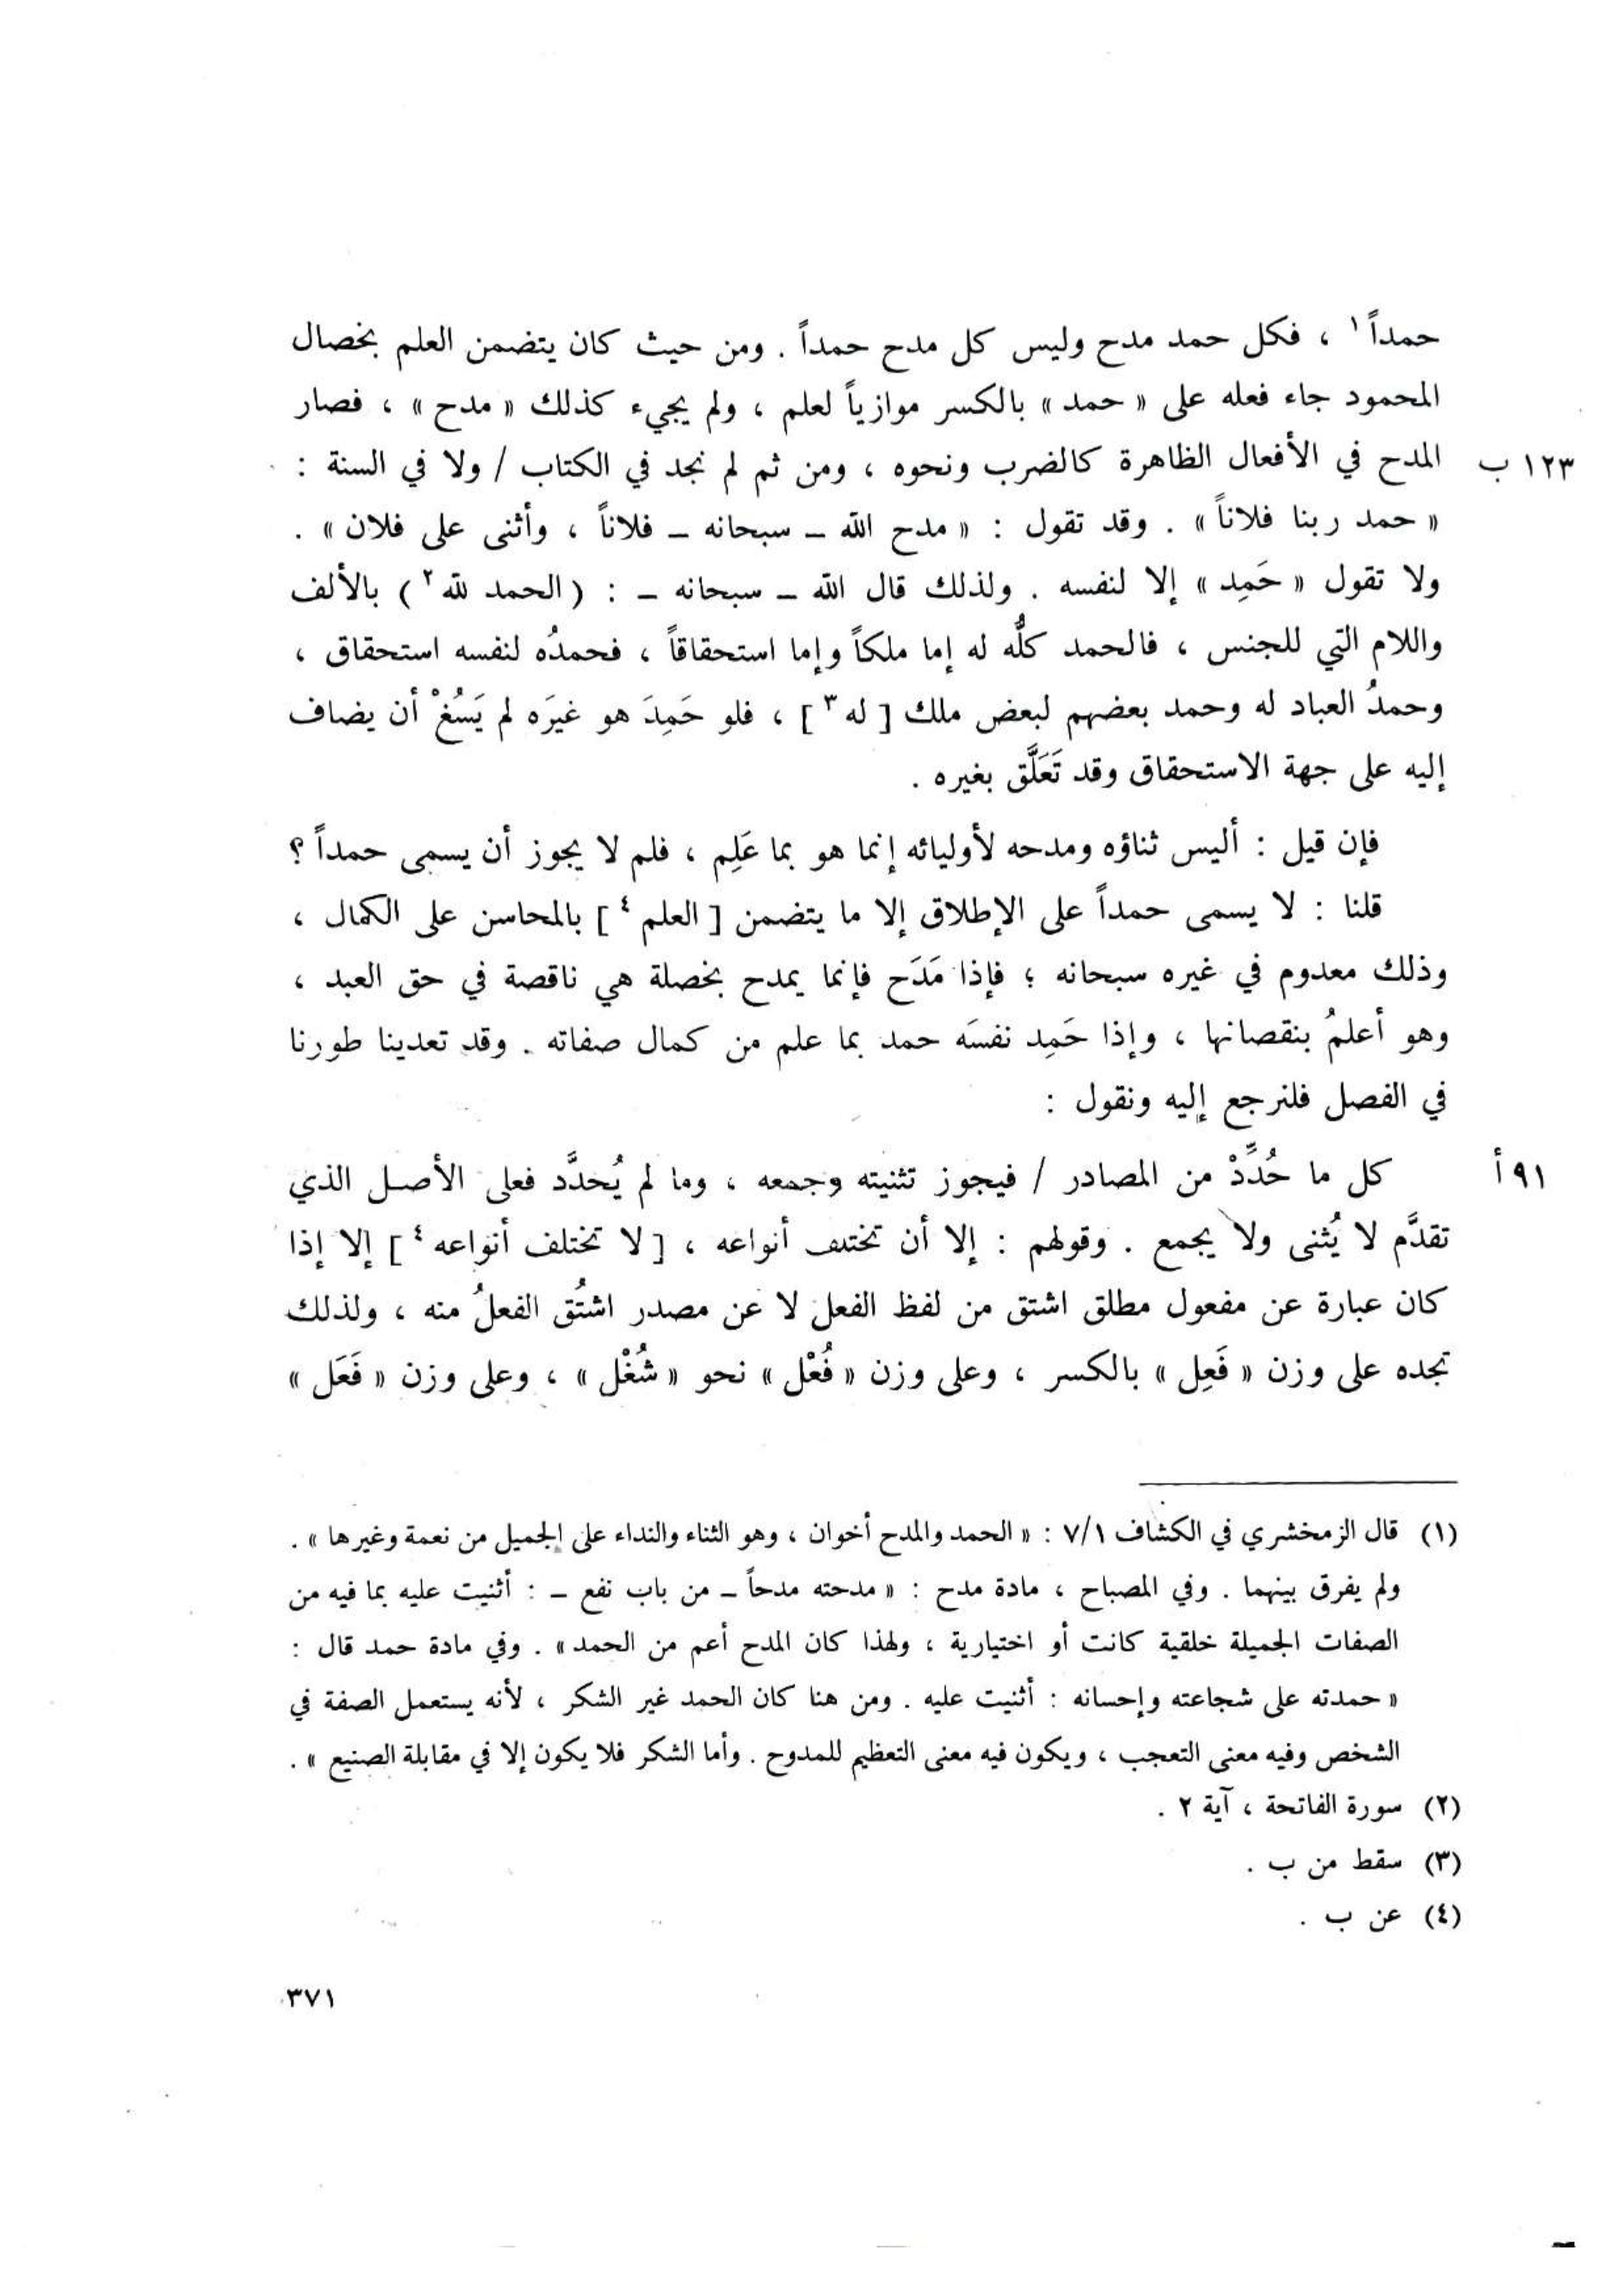 حمداً١ ، فكل حمد مدح وليس كل مدح حمداً . ومن حيث كان يتضمن العلم بخصال
المحمود جاء فعله على « حمد » بالكسر موازياً لعلم ، ولم يجيء كذلك « مدح » ، فصار
المدح في الأفعال الظاهرة كالضرب ونحوه ، ومن ثم لم نجد في الكتاب / ولا في السنة : ١٢٣ ب
« حمد ربنا فلاناً » . وقد تقول : « مدح الله – سبحانه – فلاناً ، وأثنى على فلان » .
ولا تقول « حَمِد » إلا لنفسه . ولذلك قال الله – سبحانه – : ( الحمد لله٢ ) بالألف
واللام التي للجنس ، فالحمد كلُّه له إما ملكاً وإما استحقاقاً ، فحمدُه لنفسه استحقاق ،
وحمدُ العباد له وحمد بعضهم لبعض ملك [ له٣ ] ، فلو حَمِدَ هو غيرَه لم يَسُغْ أن يضاف
إليه على جهة الاستحقاق وقد تَعَلَّق بغيره .
فإن قيل : أليس ثناؤه ومدحه لأوليائه إنما هو بما عَلِم ، فلم لا يجوز أن يسمى حمداً ؟
قلنا : لا يسمى حمداً على الإطلاق إلا ما يتضمن [ العلم٤ ] بالمحاسن على الكمال ،
وذلك معدوم في غيره سبحانه ؛ فإذا مَدَح فإنما يمدح بخصلة هي ناقصة في حق العبد ،
وهو أعلمُ بنقصانها ، وإذا حَمِد نفسَه حمد بما علم من كمال صفاته . وقد تعدينا طورنا
في الفصل فلنرجع إليه ونقول :
كل ما حُدِّدْ من المصادر / فيجوز تثنيته وجمعه ، وما لم يُحدَّد فعلى الأصل الذي ٩١ أ
تقدَّم لا يُثنى ولا يجمع . وقولهم : إلا أن تختلف أنواعه ، [ لا تختلف أنواعه٤ ] إلا إذا
كان عبارة عن مفعول مطلق اشتق من لفظ الفعل لا عن مصدر اشتُق الفعلُ منه ، ولذلك
تجده على وزن « فَعِل » بالكسر ، وعلى وزن « فُعْل » نحو « شُغْل » ، وعلى وزن « فَعَل »
(١) قال الزمخشري في الكشاف ٧/١ : « الحمد والمدح أخوان ، وهو الثناء والنداء على الجميل من نعمة وغيرها » .
ولم يفرق بينهما . وفي المصباح ، مادة مدح : « مدحته مدحاً – من باب نفع – : أثنيت عليه بما فيه من
الصفات الجميلة خلقية كانت أو اختيارية ، ولهذا كان المدح أعم من الحمد » . وفي مادة حمد قال :
« حمدته على شجاعته وإحسانه : أثنيت عليه . ومن هنا كان الحمد غير الشكر ، لأنه يستعمل الصفة في
الشخص وفيه معنى التعجب ، ويكون فيه معنى التعظيم للمدوح . وأما الشكر فلا يكون إلا في مقابلة الصنيع » .
(٢) سورة الفاتحة ، آية ٢ .
(٣) سقط من ب .
(٤) عن ب .
٣٧١